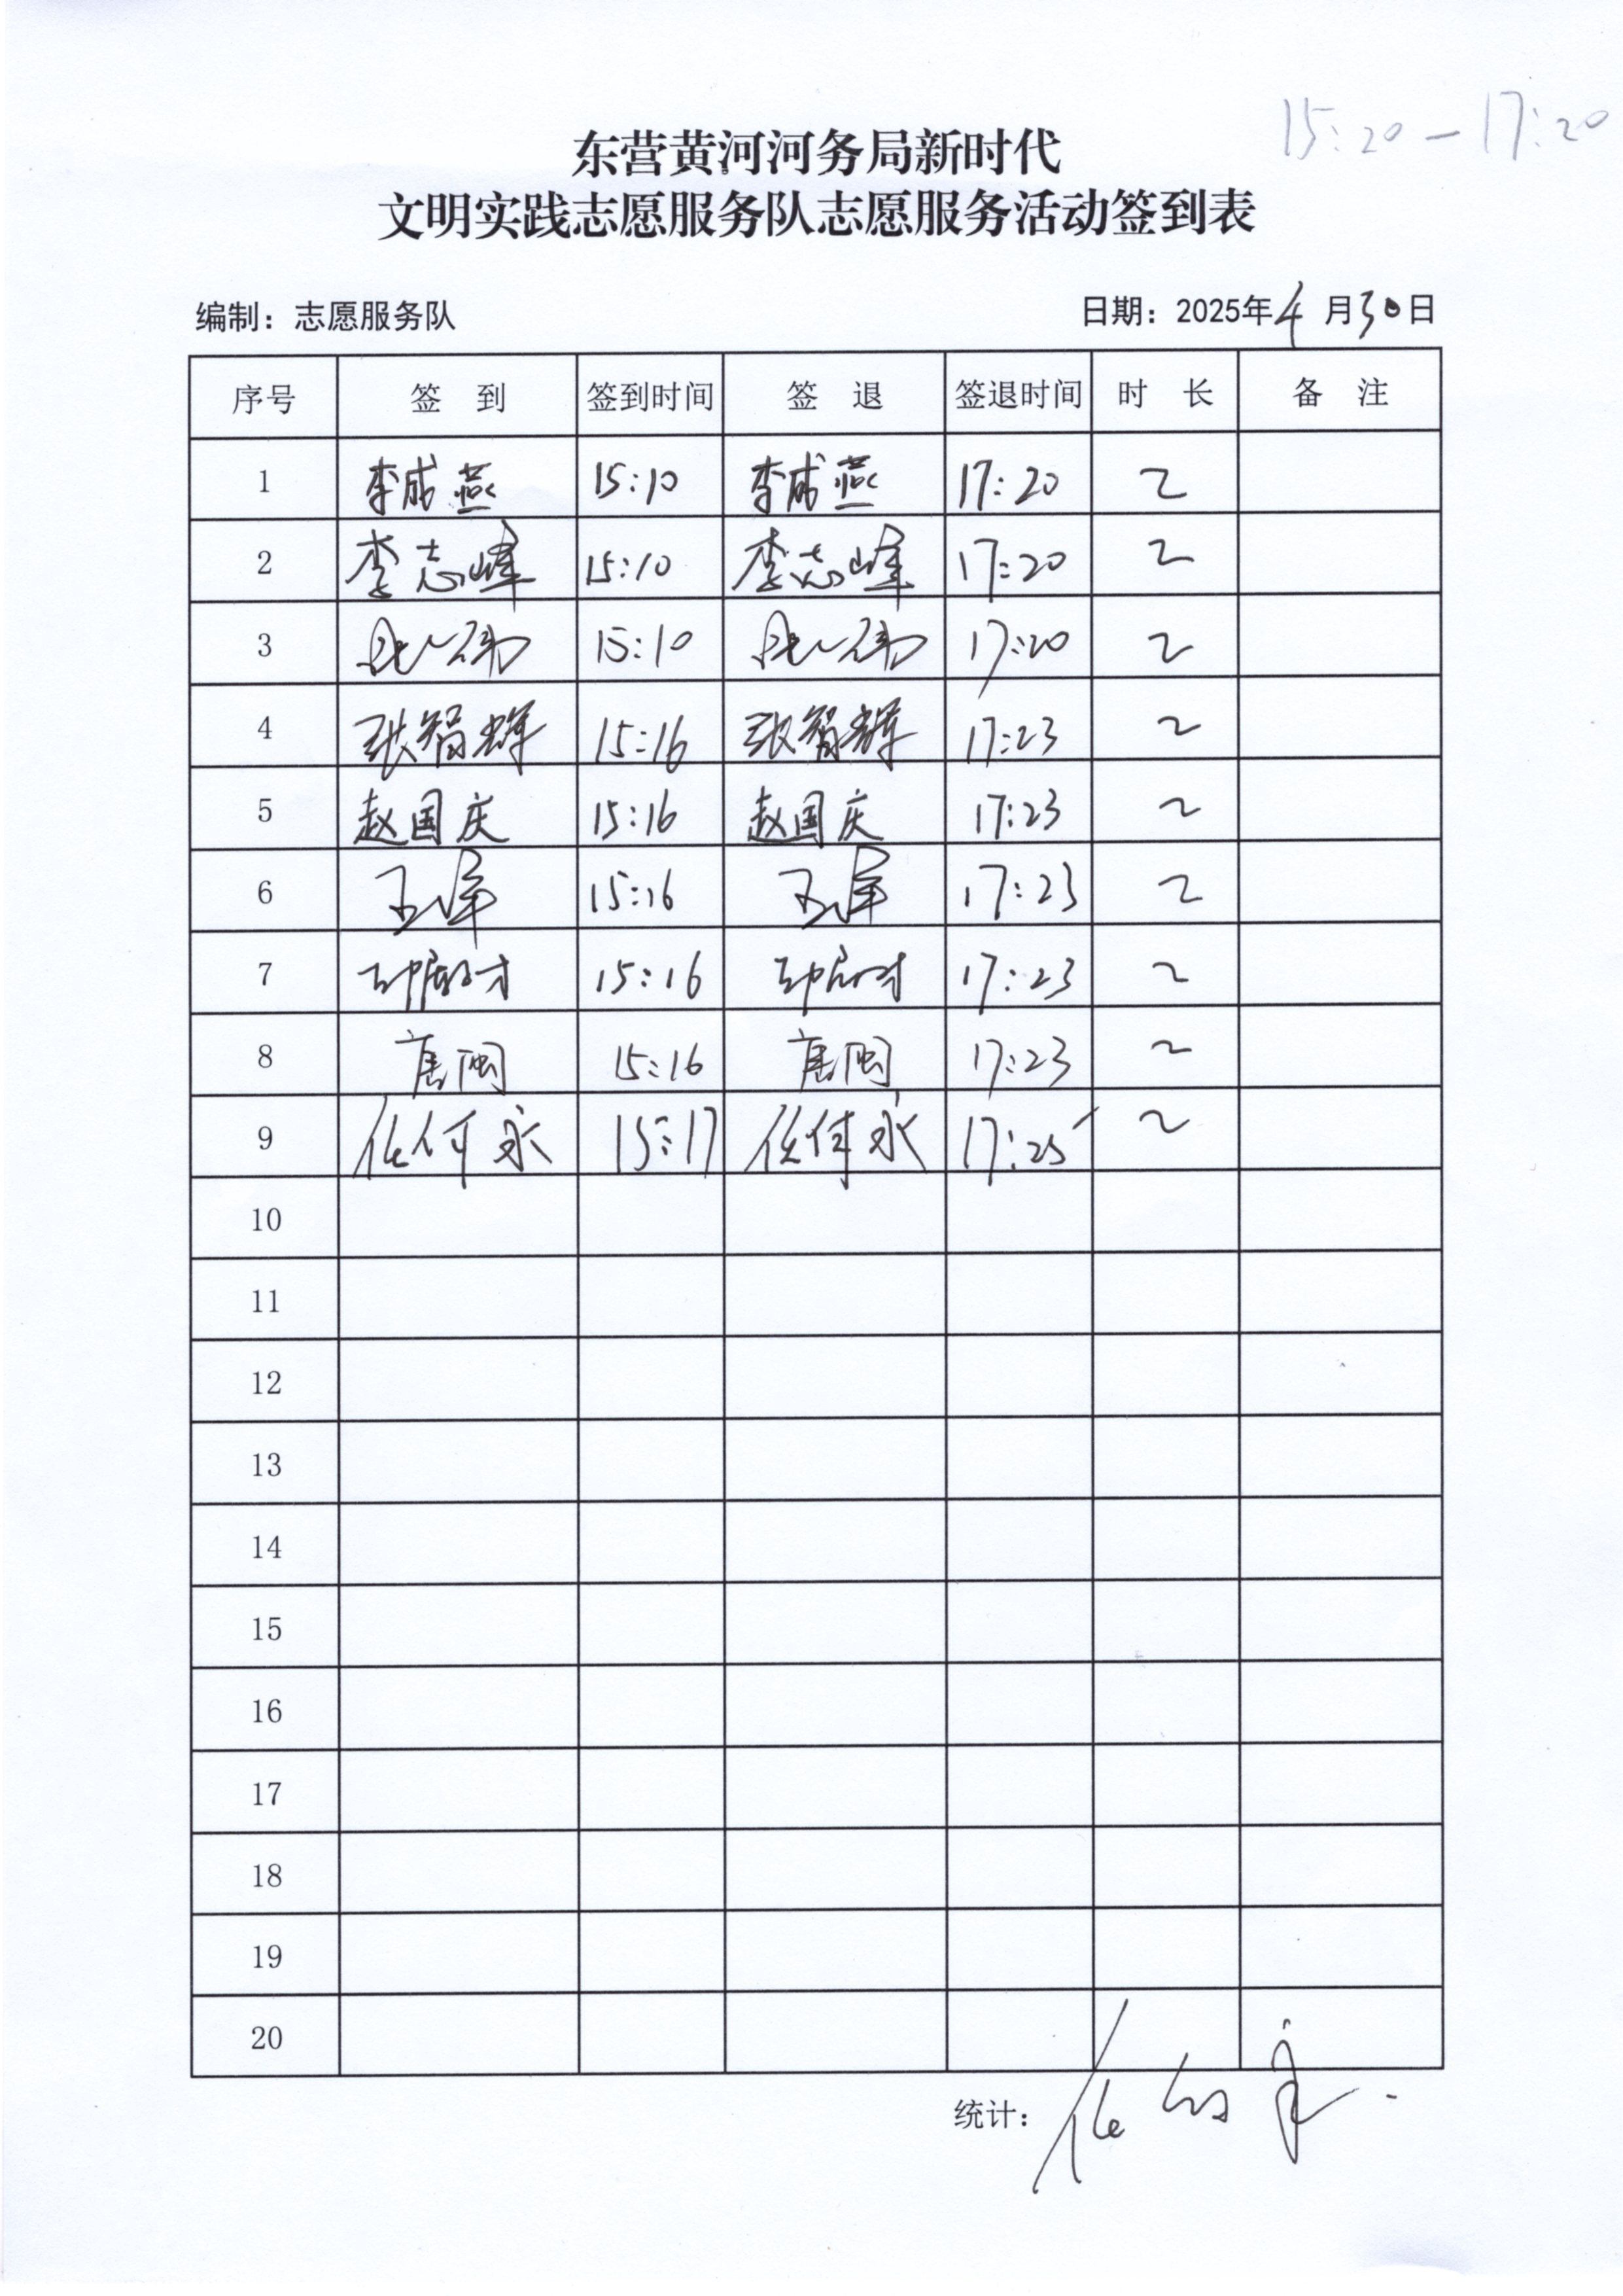 15:20-17:20
东营黄河河务局新时代
文明实践志愿服务队志愿服务活动签到表
编制：志愿服务队 日期：2025年4月30日
序号 签到 签到时间 签退 签退时间 时长 备注
1 李成燕 15:10 李成燕 17:20 2
2 李志峰 15:10 李志峰 17:20 2
3 15:10 17:20 2
4 张智辉 15:16 张智辉 17:23 2
5 赵国庆 15:16 赵国庆 17:23 2
6 15:16 17:23 2
7 15:16 17:23 2
8 唐闽 15:16 唐闽 17:23 2
9 15:17 17:25 2
10
11
12
13
14
15
16
17
18
19
20
统计：